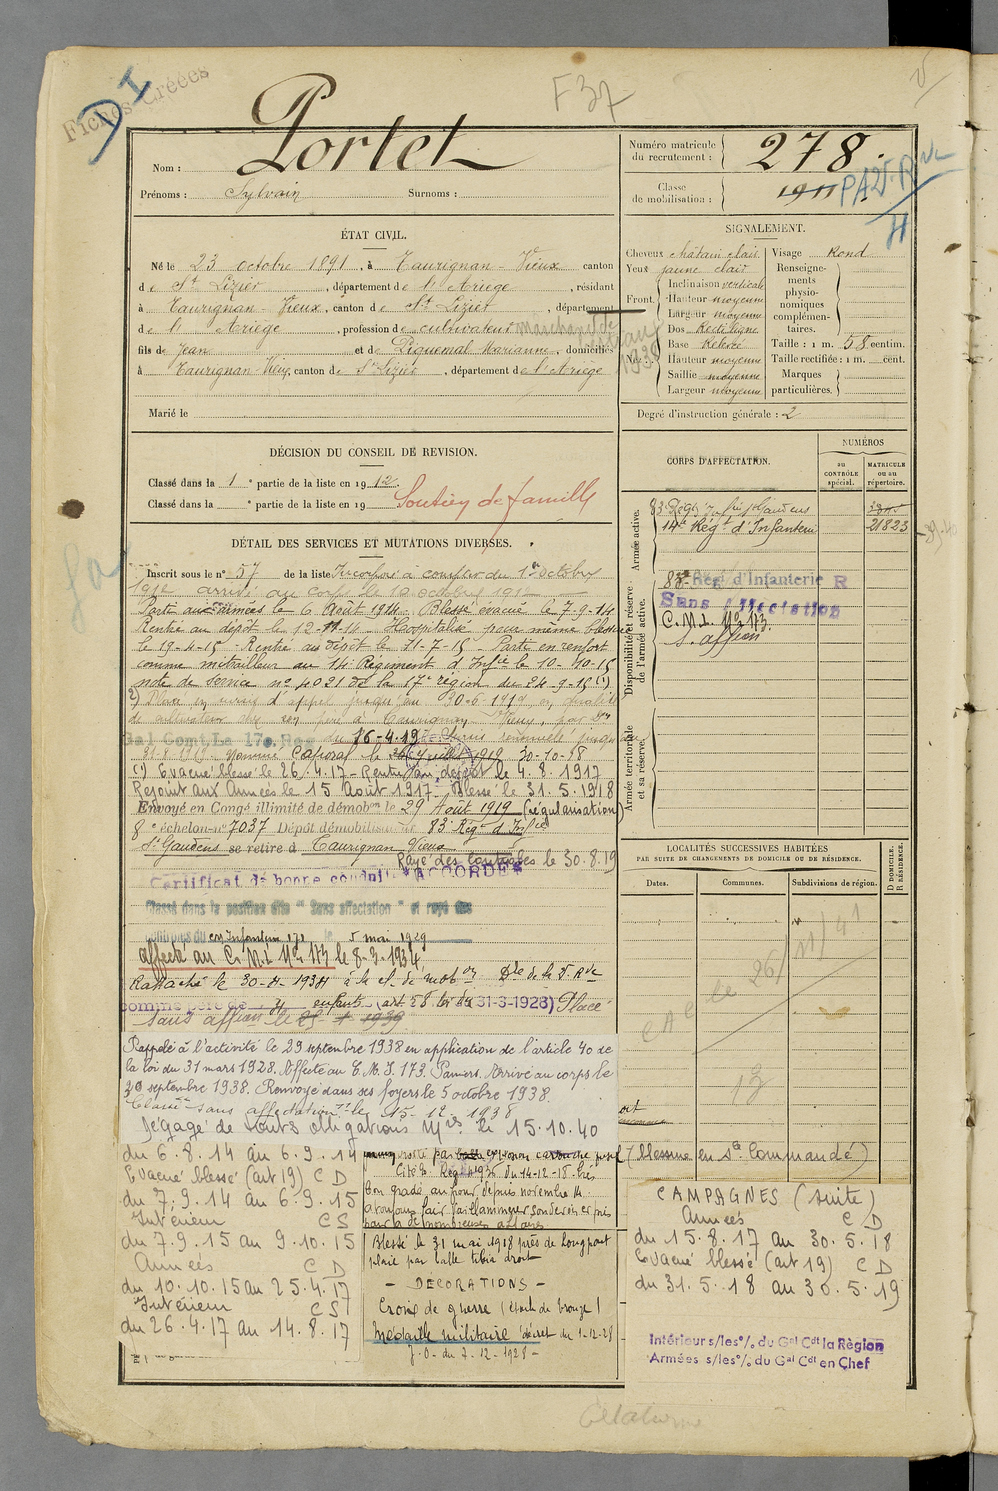 Fiches Créées
D I
F 37
Nom : Portet
Prénoms : Sylvain Surnoms :
Numéro matricule du recrutement : 278.
Classe de mobilisation : 1911
ÉTAT CIVIL.
Né le 23 octobre 1891, à Taurignan-Vieux canton
de St Lizier, département de l'Ariège, résidant
à Taurignan-Vieux, canton de St Lizier, département
de l'Ariège, profession de cultivateur
fils de Jean et de Piquemal Marianne, domiciliés
à Taurignan-Vieux, canton de St Lizier, département de l'Ariège
1938
Marié le
SIGNALEMENT.
Cheveux châtain clair
Yeux jaune clair
Front. Inclinaison verticale
Hauteur moyenne
Largeur moyenne
Nez. Dos Rectiligne
Base Relevé
Hauteur moyenne
Saillie moyenne
Largeur moyenne
Visage Rond
Renseignements physionomiques complémentaires.
Taille : 1 m. 58 centim.
Taille rectifiée : 1 m. cent.
Marques particulières.
Degré d'instruction générale : 2
DÉCISION DU CONSEIL DE REVISION.
Classé dans la 1e partie de la liste en 1912.
Classé dans la e partie de la liste en 19
Soutien de famille
DÉTAIL DES SERVICES ET MUTATIONS DIVERSES.
Inscrit sous le n° 57 de la liste Incorporé à compter du 1er octobre
1912 arrivé au corps le 10 octobre 1912
Parti aux armées le 6 Août 1914. Blessé évacué le 7-9-14
Rentré au dépôt le 12-11-14 Hospitalisé pour même blessure
le 19-4-15 - Rentré au dépôt le 11-7-15 - Parti en renfort
comme mitrailleur au 14e Régiment d'Infie le 10-10-15
note de service n° 4021 de la 17e région du 24-9-15 (1)
2) jusqu'au 30-6-1919 en qualité
de cultivateur chez son père à Taurignan Vieux, par
Gal Comt La 17e Reg du 16-4-19
Nommé Caporal le 30-10-18
(1) Evacué blessé le 26.4.17 - Rentré au dépôt le 4.8.1917
Rejoint aux Armées le 15 Août 1917. Blessé le 31.5.1918
Envoyé en Congé illimité de démobon le 29 Août 1919 (régularisation)
8e échelon n° 7037 Dépôt démobilisateur 83e Régt d'Infie
St Gaudens se retire à Taurignan Vieux
Rayé des contrôles le 30.8.19
Certificat de bonne conduite "ACCORDÉ"
Classé dans la position dite "Sans affectation" et rayé des
contrôles du le 5 mai 1929
affecté au C.M.I. N° 173 le 8-3-1934
Rattaché le
comme père de 4 enfants (art 58 loi du 31-3-1928) Placé
sans affion le 1939
Rappelé à l'activité le 29 septembre 1938 en application de l'article 40 de
la loi du 31 mars 1928. Affecté au C.M.I. 173. Pamiers. Arrivé au corps le
29 septembre 1938. Renvoyé dans ses foyers le 5 octobre 1938.
Classé sans affectation le 15-12-1938
Dégagé de toutes obligations Mres le 15.10.40
CORPS D'AFFECTATION.
NUMÉROS
au CONTRÔLE spécial.
MATRICULE ou au répertoire.
Armée active.
83e Régt d'Infie St Gaudens
14e Régt d'Infanterie 21823
Disponibilité et réserve de l'armée active.
83e Régt d'Infanterie R
Sans affectation
C.M.I. N° 173.
s. affion
Armée territoriale et sa réserve.
LOCALITÉS SUCCESSIVES HABITÉES
PAR SUITE DE CHANGEMENTS DE DOMICILE OU DE RÉSIDENCE.
Dates. Communes. Subdivisions de région. D DOMICILE. R RÉSIDENCE.
le 26/11/41
du 6.8.14 au 6.9.14
Evacué blessé (art 19) C D
du 7.9.14 au 6.9.15
Intérieur C S
du 7.9.15 au 9.10.15
Armées C D
du 10.10.15 au 25.4.17
Intérieur C S
du 26.4.17 au 14.8.17
Cité O. Régt 1936 du 14-12-18 très
bon gradé, au front depuis novembre 14.
a toujours fait vaillamment son devoir et pris
part à de nombreuses affaires
Blessé le 31 mai 1918 près de Longpont
plaie par balle tibia droit
- DECORATIONS -
Croix de guerre (étoile de bronze)
Médaille militaire décret du 1-12-28
J.O. du 7-12-1928 -
(blessure en Sce Commandé)
CAMPAGNES (suite)
Armées C D
du 15.8.17 au 30.5.18
Evacué blessé (art 19) C D
du 31.5.18 au 30.5.19
Intérieur s/les o/. du Gal Cdt la Région
Armées s/les o/. du Gal Cdt en Chef